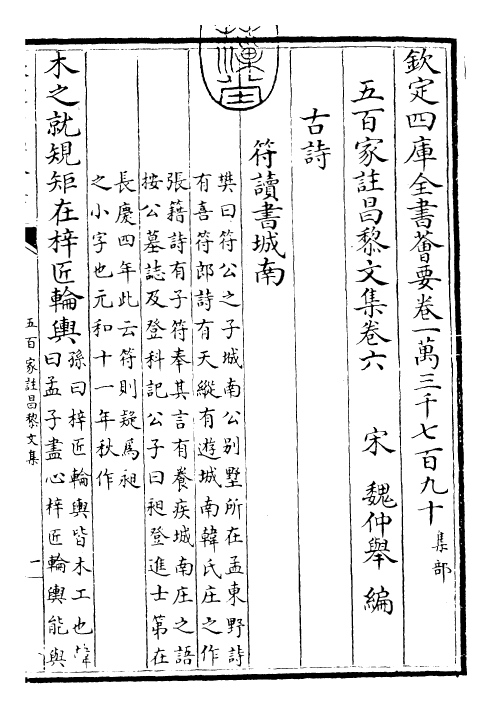 欽定四庫全書薈要卷一萬三千七百九十 集部
五百家註昌黎文集卷六
宋 魏仲舉 編
古詩
符讀書城南
樊曰符公之子城南公别墅所在孟東野詩
有喜符郎詩有天縱有遊城南韓氏庄之作
張籍詩有子符奉其言有養疾城南庄之語
按公墓誌及登科記公子曰昶登進士第在
長慶四年此云符則疑為昶
之小字也元和十一年秋作
木之就規矩在梓匠輪輿
孫曰梓匠輪輿皆木工也韓
曰孟子盡心梓匠輪輿能與
五百家註昌黎文集
一